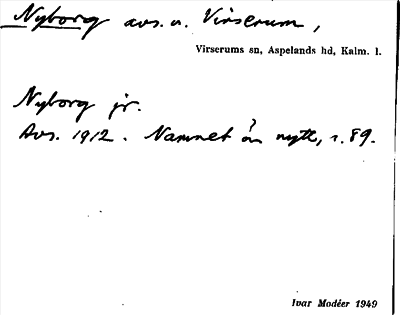 Nyborg avs. u. Virserum,
Virserums sn, Aspelands hd, Kalm. l.
Nyborg jr.
Avs. 1912. Namnet än nytt, s. 89.
Ivar Modéer 1949